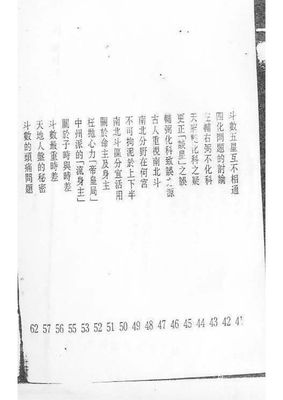 斗數五星互不相通 41
四化問題的討論 42
輔右弼不化科 43
天府化科之疑 44
更正「談星」之誤 45
輔弼化科致誤之源 46
古人重視南北斗 47
南北分野在何宮 48
不可拘泥於上下半 49
南北斗區分宜活用 50
關於命主及身主 51
枉拋心力「帝皇局」 52
中州派的「流身主」 53
關於子時與時差 55
斗數最重時差 56
天地人盤的秘密 57
斗數的頭痛問題 62